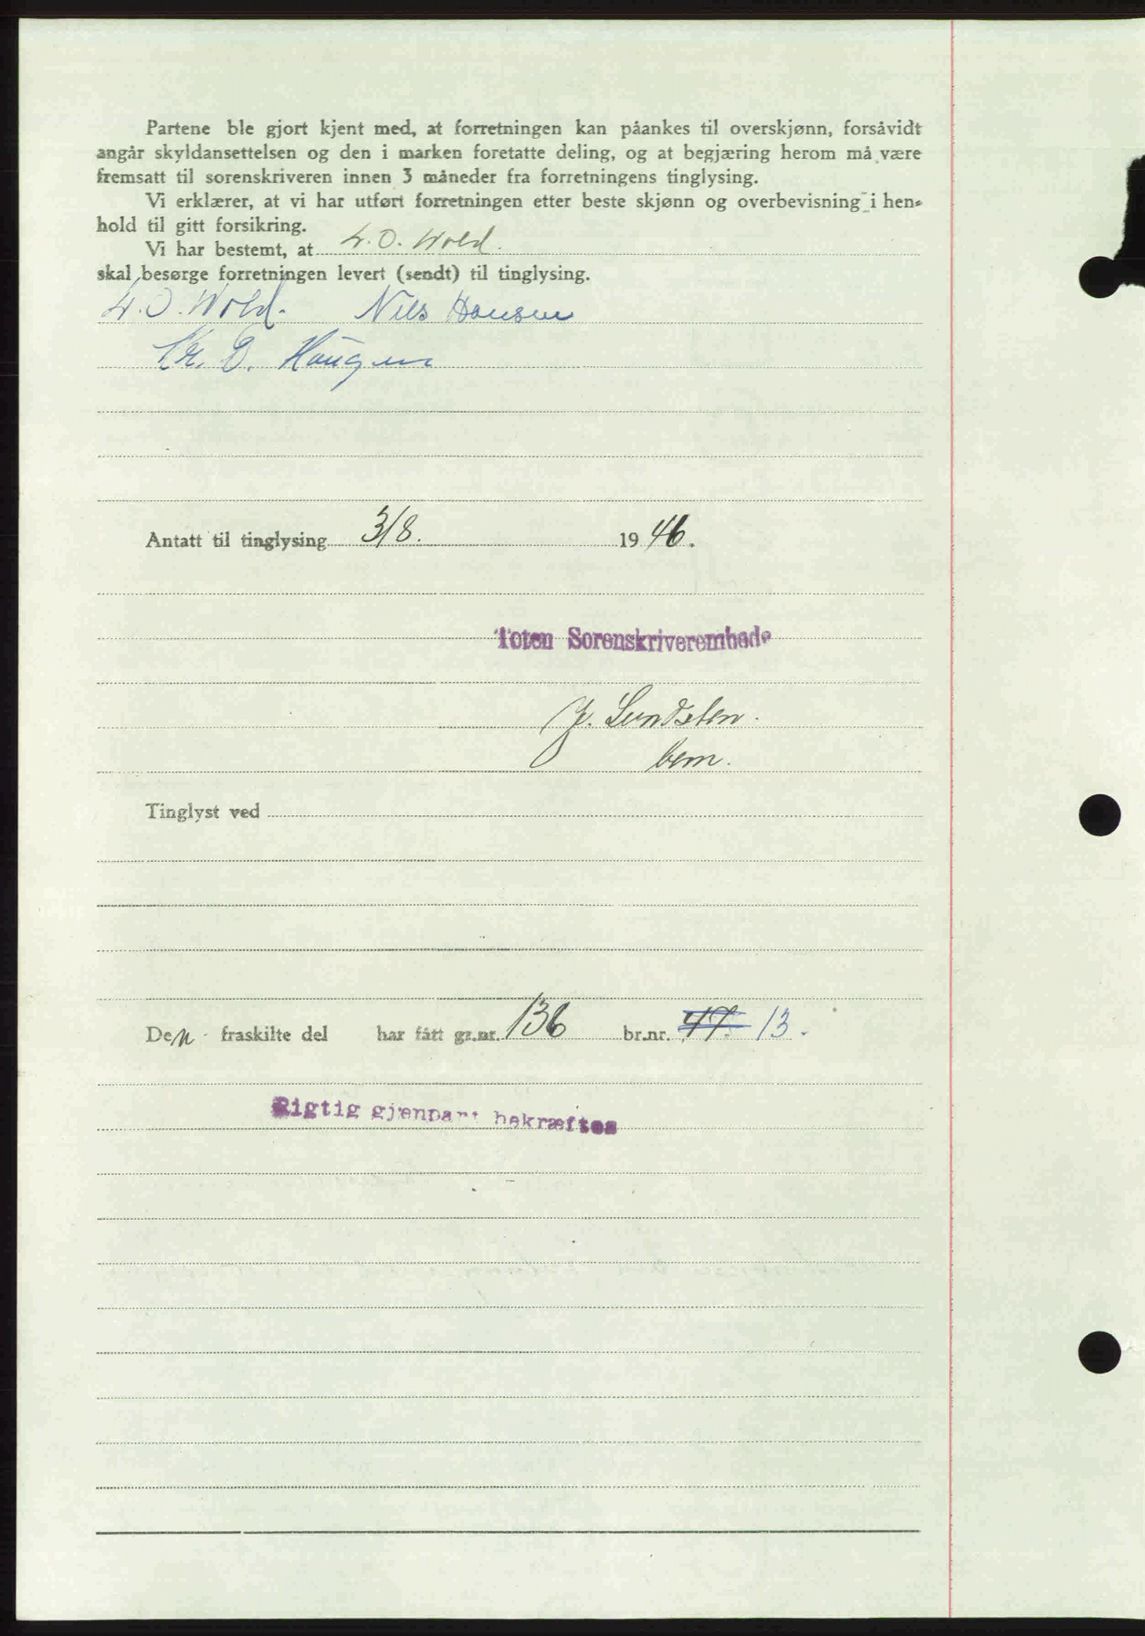 Partene ble gjort kjent med, at forretningen kan påankes til overskjønn, forsåvidt
angår skyldansettelsen og den i marken foretatte deling, og at begjæring herom må være
fremsatt til sorenskriveren innen 3 måneder fra forretningens tinglysing.
Vi erklærer, at vi har utført forretningen etter beste skjønn og overbevisning i hen-
hold til gitt forsikring.
Vi har bestemt, at O. Wold.
skal besørge forretningen levert (sendt) til tinglysing.
O. Wold. Nils Hansen
Kr. D. Haugen
Antatt til tinglysing 3/8. 1946.
Toten Sorenskriverembede
J. Sundsten.
bem.
Tinglyst ved
Den fraskilte del har fått gr.nr. 136 br.nr. 47. 13.
Rigtig gjenpart bekræftes